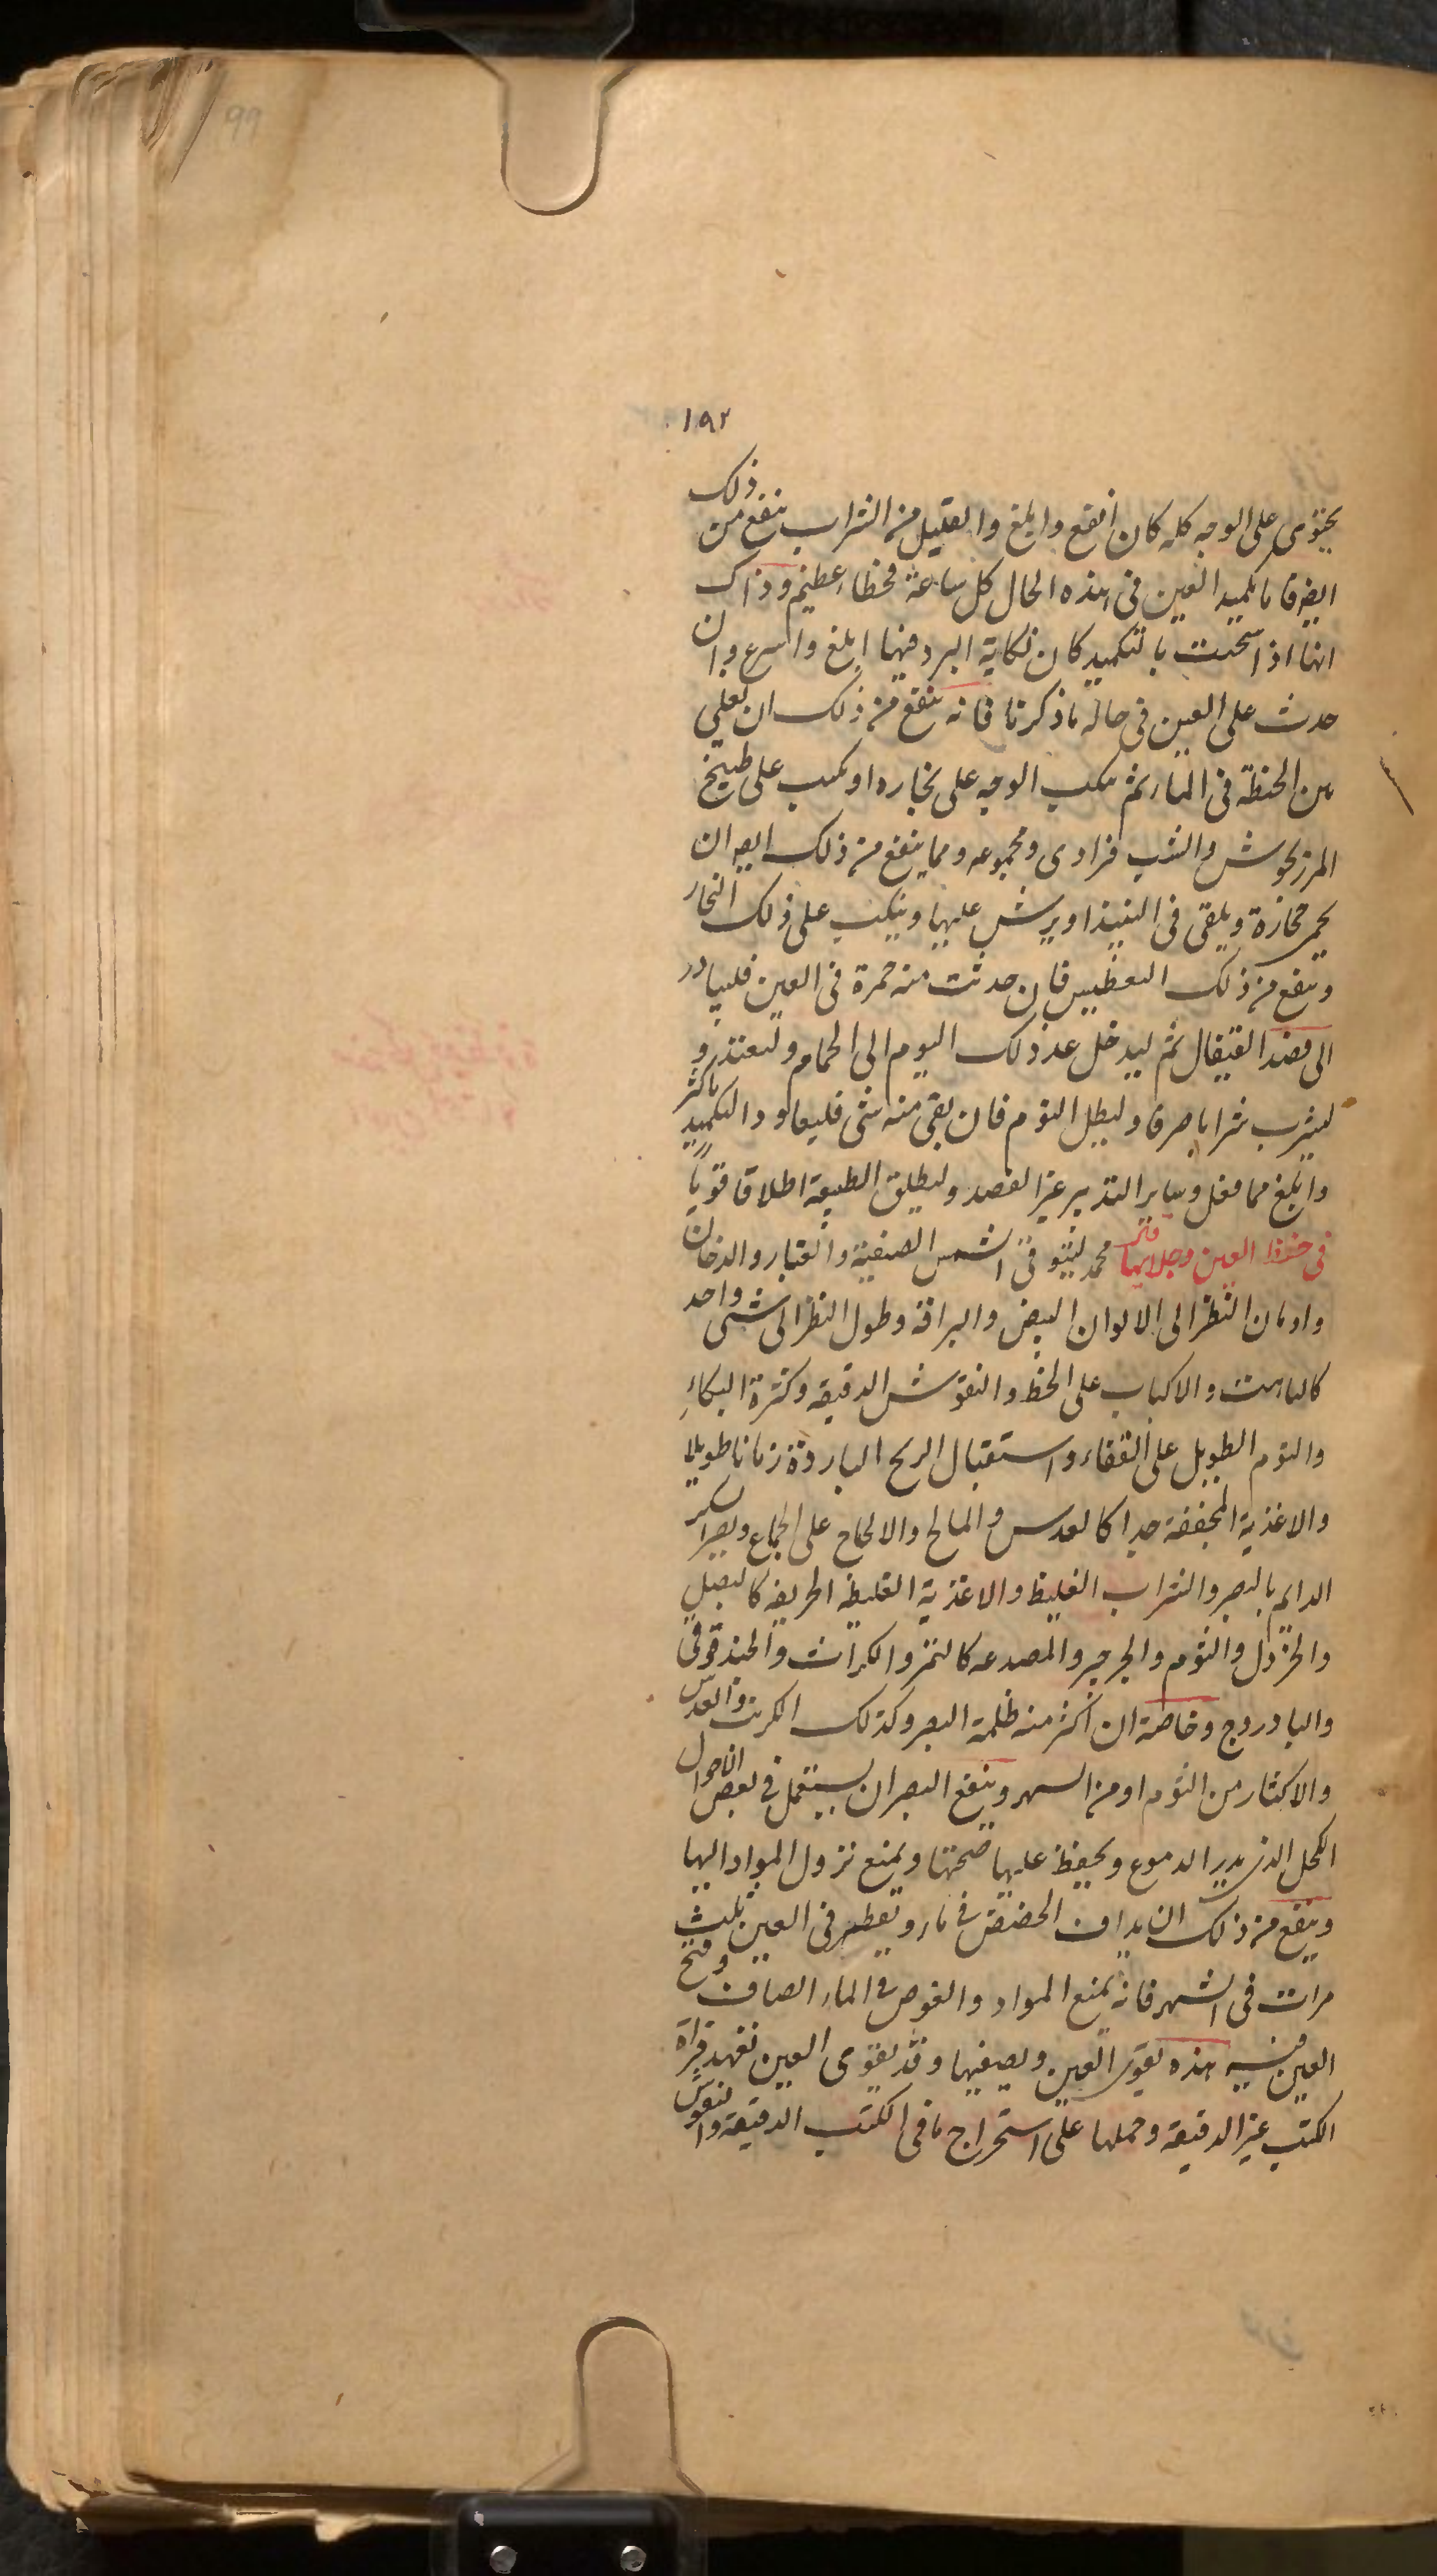 ١٩٢
يحتوى على الوجه كله كان أنفع وابلغ والقليل من الشراب ينفع من ذلك
ايضا فاما تكميد العين فى هذه الحال كل ساعة فخطاء عظيم وذاك
انها اذا سخنت بالتكميد كان نكاية البرد فيها ابلغ واسرع وان
حدث على العين فى حاله ما ذكرنا فانه ينفع من ذلك ان يغلي
من الحنطة فى الماء ثم يكب الوجه على بخاره او يكب على طبيخ
المرزنجوش والشب فرادى ومجموعه ومما ينفع من ذلك ايضا ان
يحمى حجارة ويلقى فى النبيذ او يرش عليها وينكب على ذلك البخار
وينفع من ذلك التعطيس فان حدثت منه حمرة فى العين فليبادر
الى فصد القيفال ثم ليدخل عند ذلك اليوم الى الحمام وليغتذ و
ليشرب شرابا صرفا وليطل النوم فان بقى منه شى فليعاود التكميد باكثر
وابلغ مما فعل وساير التدبير غير الفصد وليطلق الطبيعة اطلاقا قويا
فى حفظ العين وجلايها محمد ليتوقى الشمس الصيفية والغبار والدخان
وادمان النظر الى الالوان البيض والبراقة وطول النظر الى شى واحد
كالباهت والاكباب على الخط والنقوش الدقيقه وكثرة البكاء
والنوم الطويل على القفاء واستقبال الريح الباردة زمانا طويلا
والاغذية المجففة جدا كالعدس والمالح والالحاح على الجماع ويضر السكر
الدايم بالبصر والشراب الغليظ والاغذية الغليظه الحريفه كالبصل
والخردل والثوم والجرجير والمصدعه كالتمر والكراث والحندقوقى
والبادروج وخاصة ان اكثر منه ظلمة البصر وكذلك الكرنب والعدس
والاكثار من النوم او من السهر وينفع البصر ان يستعمل فى بعض الاحوال
الكحل الذى يدير الدموع ويحفظ عليها صحتها ويمنع نزول المواد اليها
وينفع من ذلك ان يداف الحضض فى ماء ويقطر فى العين ثلث
مرات فى الشهر فانه يمنع المواد والغوص فى الماء الصافى وفتح
العين فيه هذه يقوى العين ويصفيها وقد يقوى العين تعهد قراة
الكتب غير الدقيقه وحملها على استخراج ما فى الكتب الدقيقة والنقوش